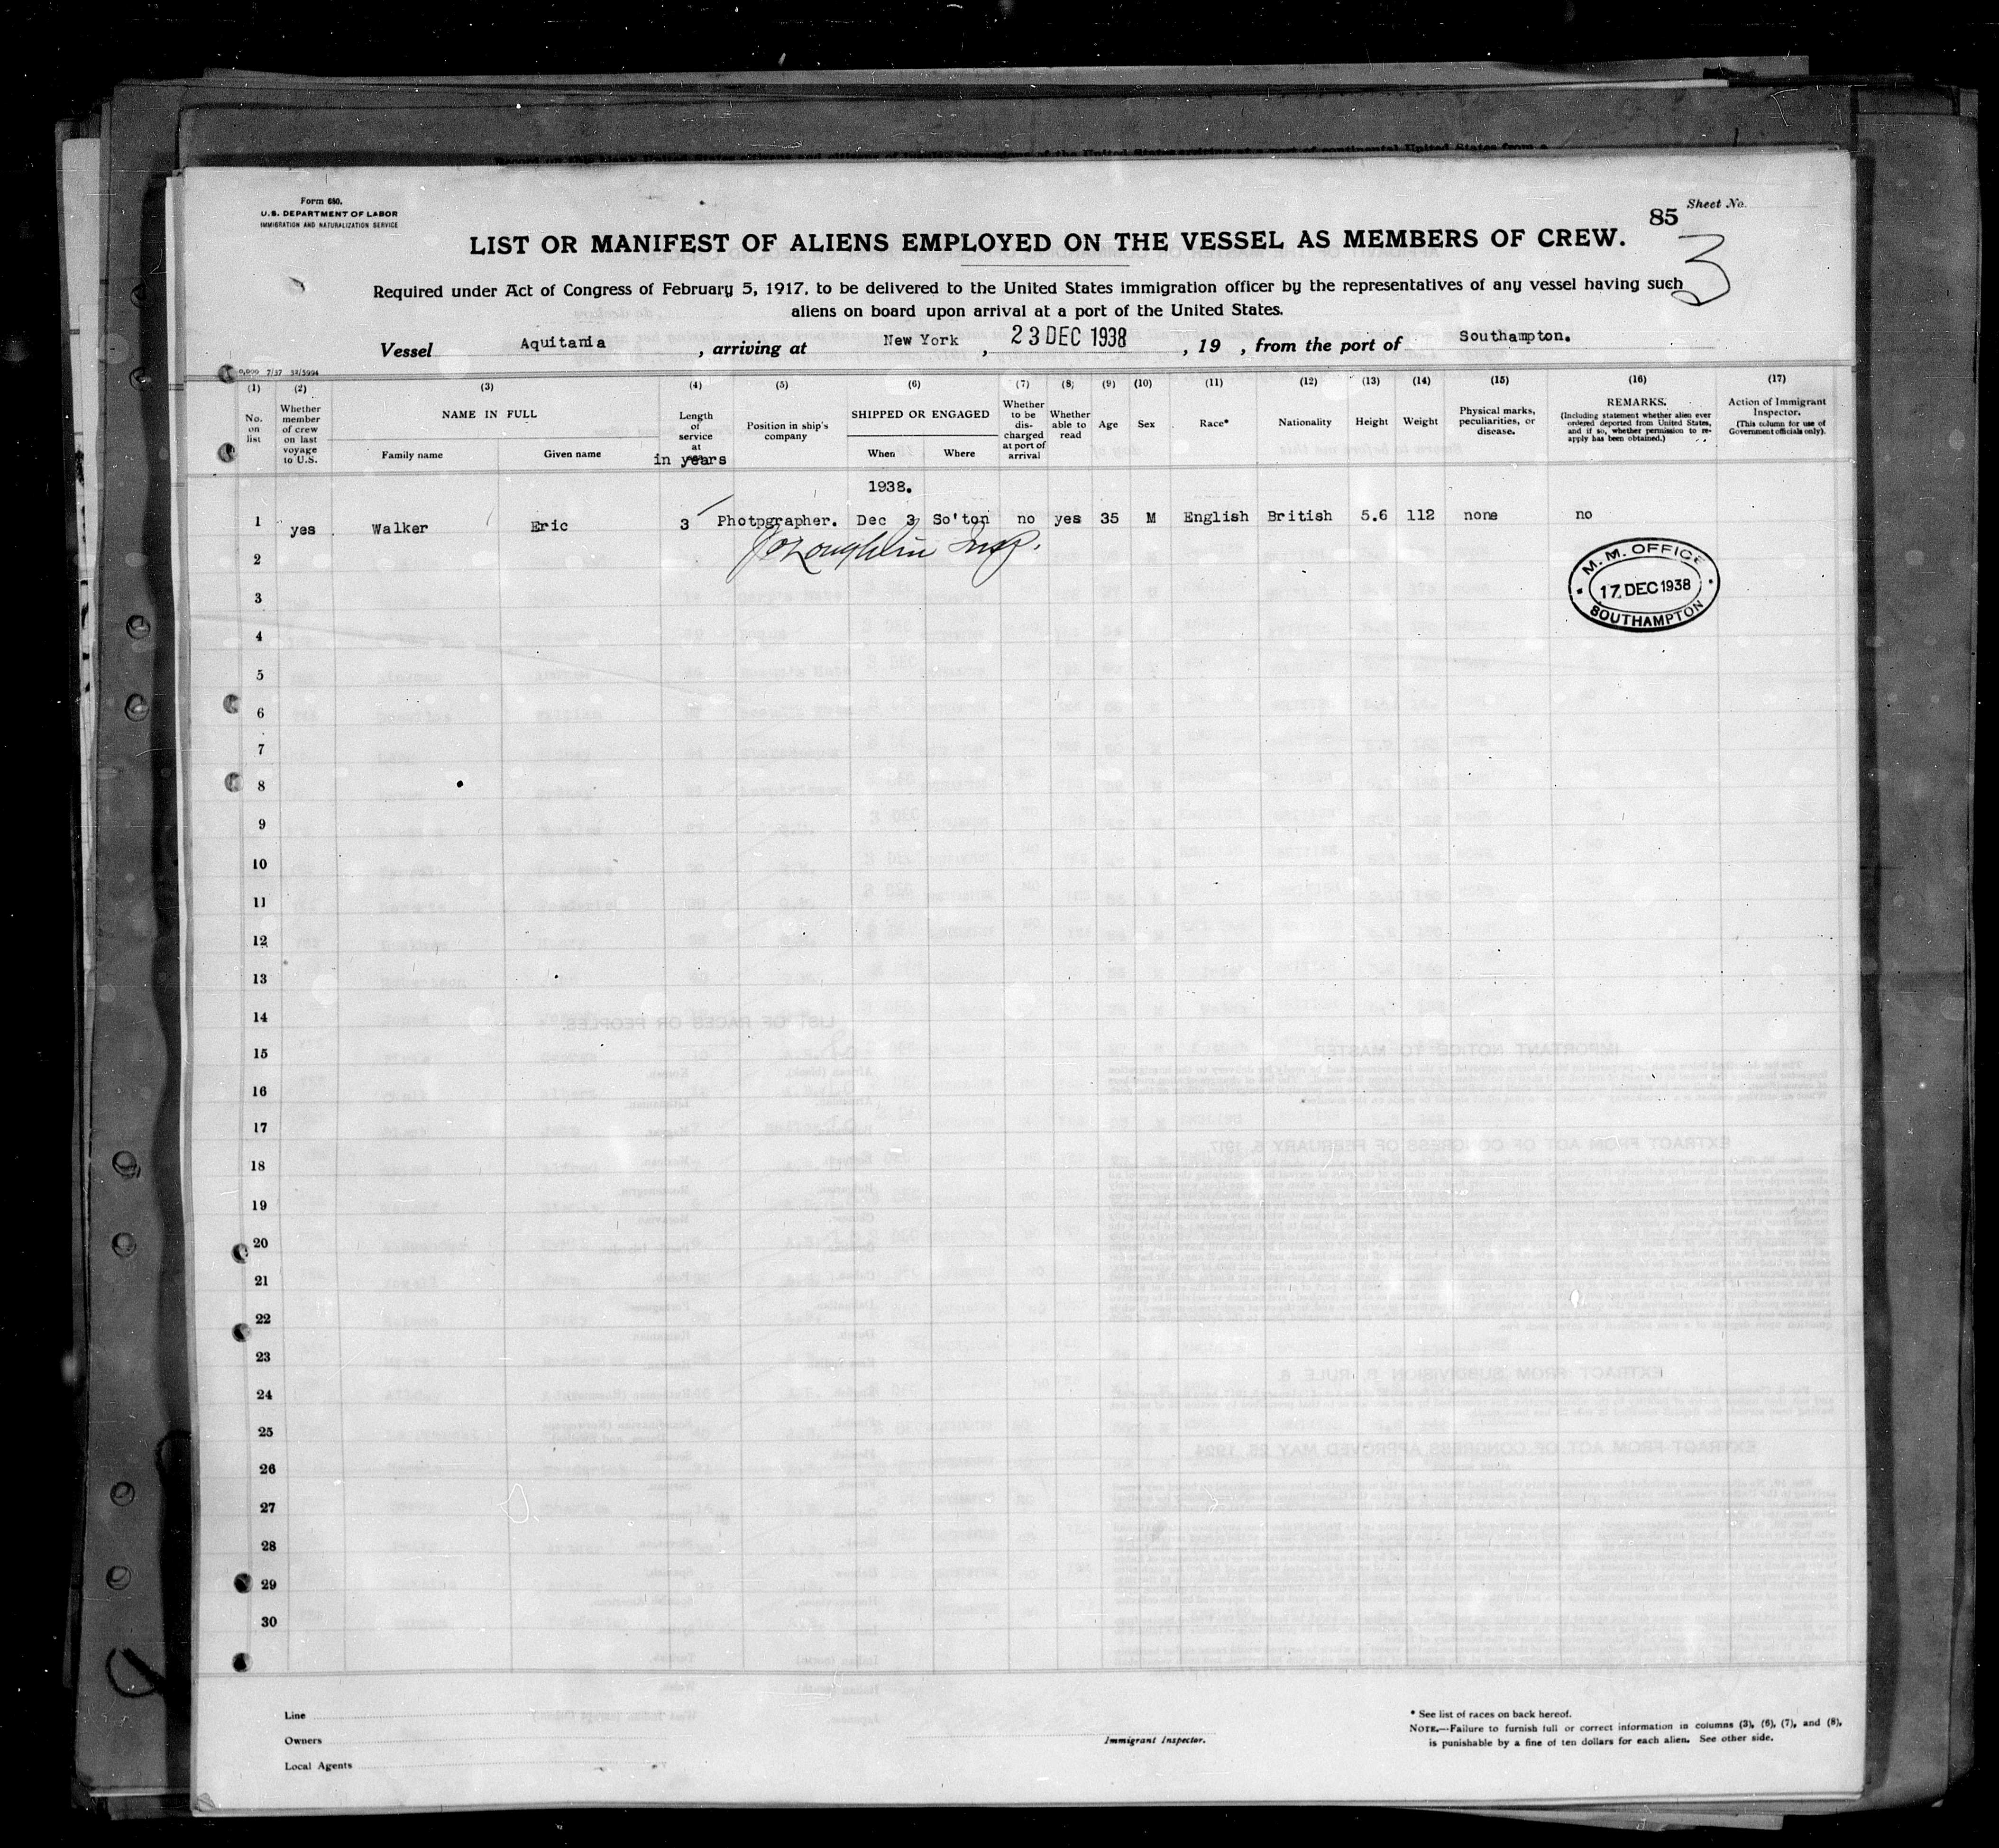 Form 680.
U.S. DEPARTMENT OF LABOR
IMMIGRATION AND NATURALIZATION SERVICE
Sheet No.
85
3
LIST OR MANIFEST OF ALIENS EMPLOYED ON THE VESSEL AS MEMBERS OF CREW.
Required under Act of Congress of February 5, 1917, to be delivered to the United States immigration officer by the representatives of any vessel having such
aliens on board upon arrival at a port of the United States.
Vessel Aquitania , arriving at New York , 23 DEC 1938 , 19 , from the port of Southampton.
(1) (2) (3) (4) (5) (6) (7) (8) (9) (10) (11) (12) (13) (14) (15) (16) (17)
No. on list
Whether member of crew on last voyage to U.S.
NAME IN FULL
Family name
Given name
Length of service at
in years
Position in ship's company
SHIPPED OR ENGAGED
When
Where
Whether to be discharged at port of arrival
Whether able to read
Age
Sex
Race*
Nationality
Height
Weight
Physical marks, peculiarities, or disease.
REMARKS.
(Including statement whether alien ever ordered deported from United States, and if so, whether permission to reapply has been obtained.)
Action of Immigrant Inspector.
(This column for use of Government officials only).
1938.
1 yes Walker Eric 3 Photpgrapher. Dec 3 So'ton no yes 35 M English British 5.6 112 none no
2
M. M. OFFICE
17 DEC 1938
SOUTHAMPTON
3
4
5
6
7
8
9
10
11
12
13
14
15
16
17
18
19
20
21
22
23
24
25
26
27
28
29
30
Line
Owners
Local Agents
Immigrant Inspector.
* See list of races on back hereof.
NOTE.—Failure to furnish full or correct information in columns (3), (6), (7), and (8),
is punishable by a fine of ten dollars for each alien. See other side.